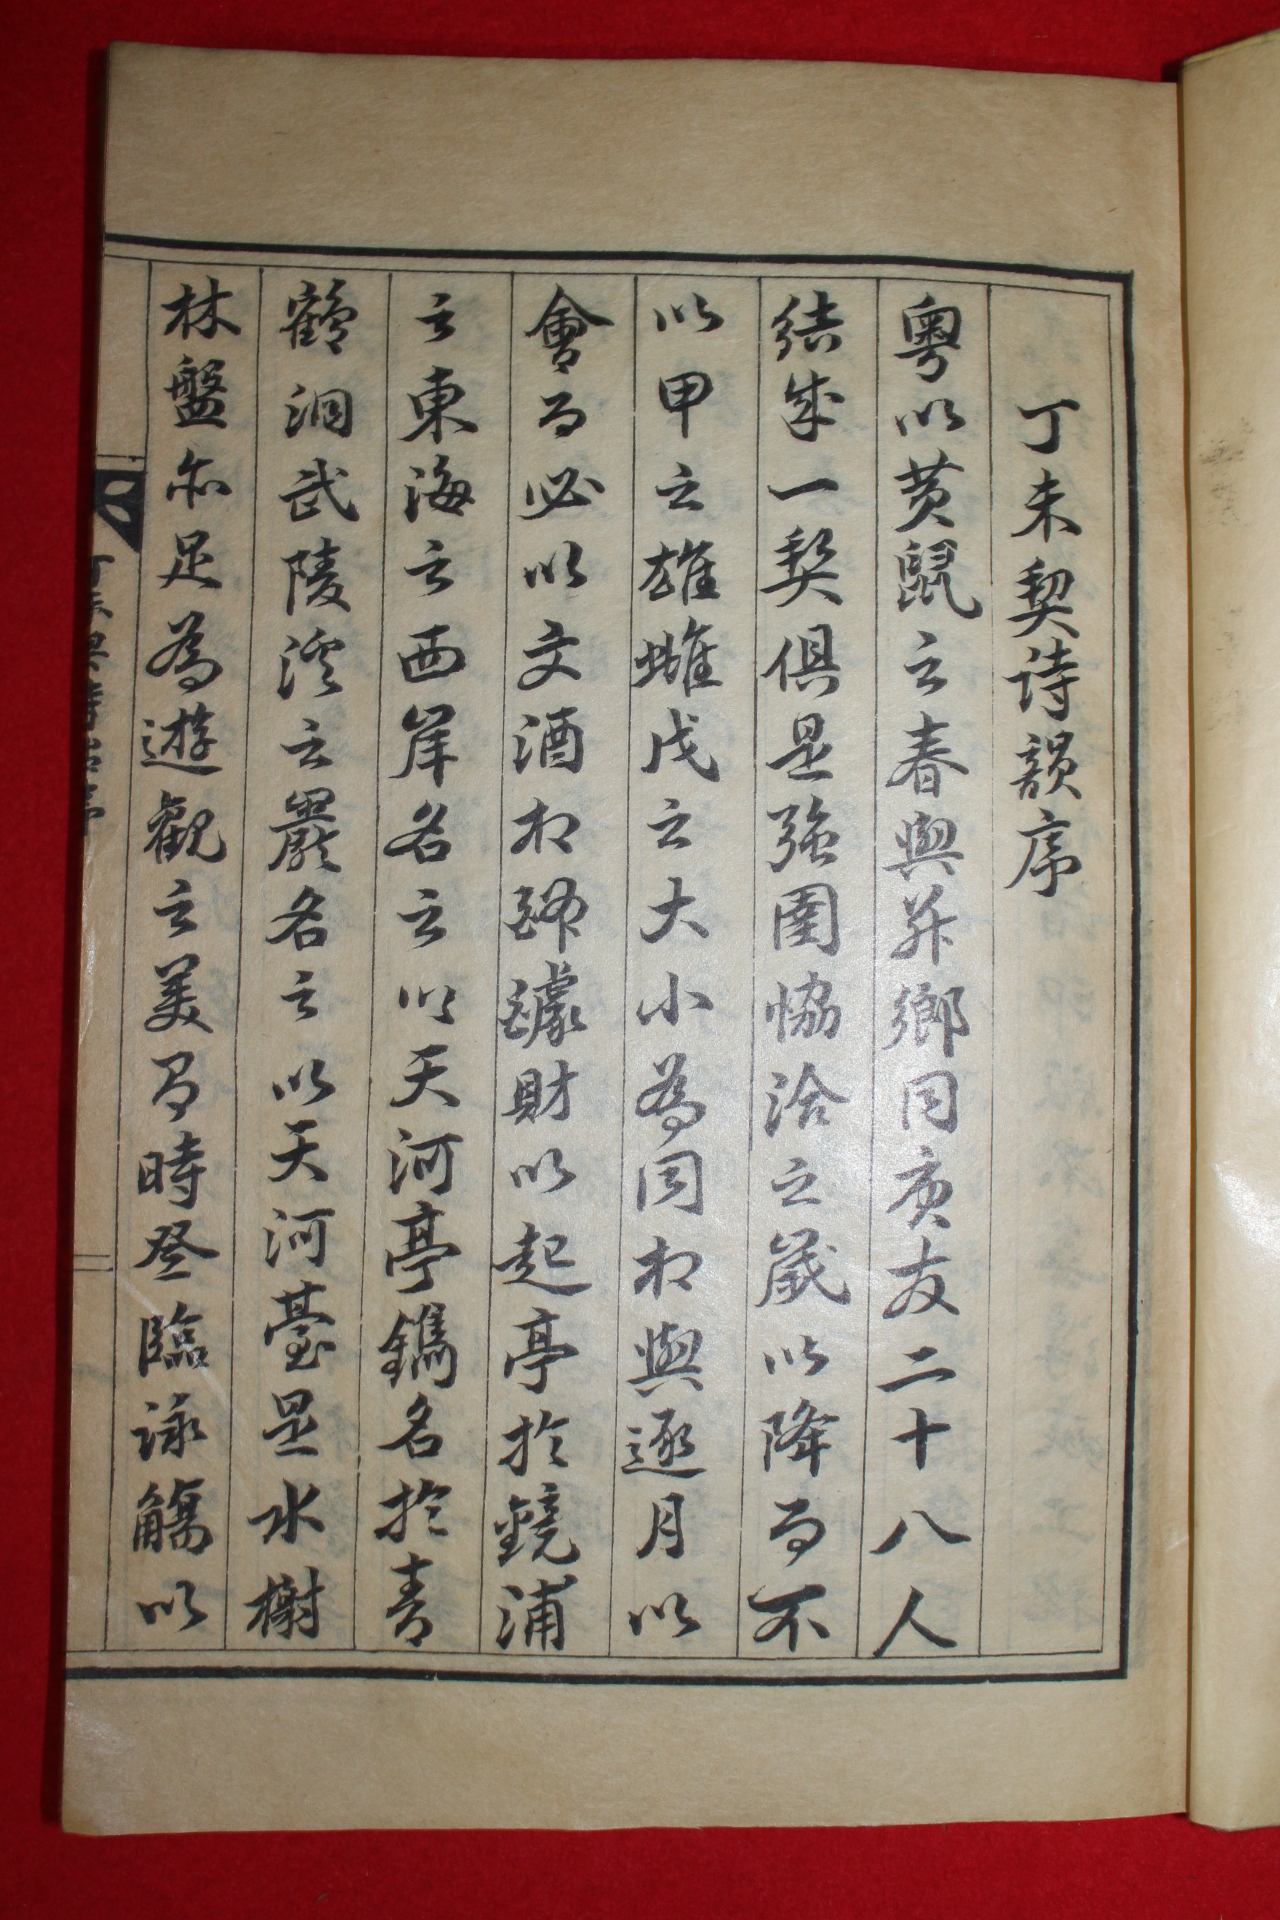 丁未契詩韻序
粤以黃鼠之春與并鄉同庚友二十八人
結成一契俱是強圉協洽之歲以降而不
以甲之雄雌戊之大小為同相與逐月以
會而必以文酒相歸醵財以起亭於鏡浦
之東海之西岸名之以天河亭鐫名於青
鶴洞武陵溪之巖名之以天河臺是水榭
林盤亦足為遊觀之美而時登臨詠觴以